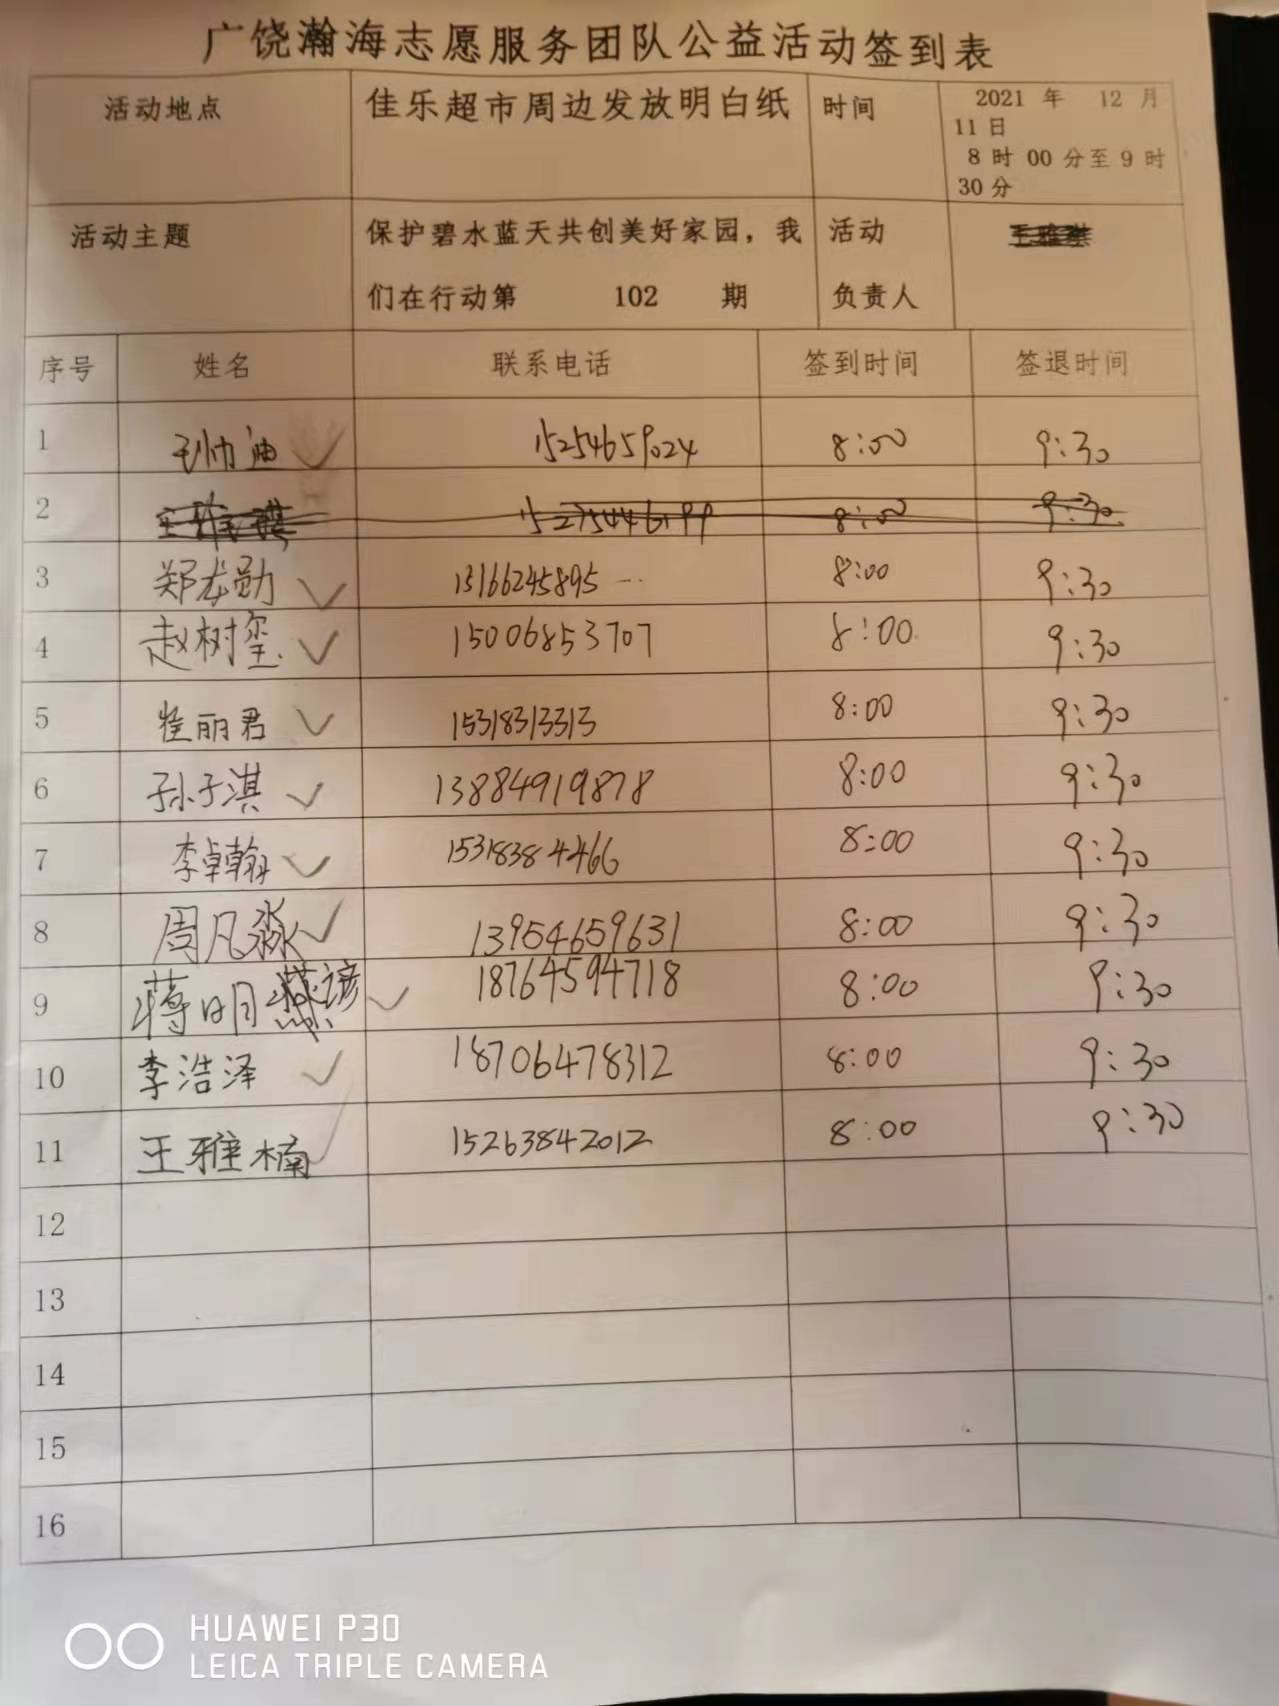 广饶瀚海志愿服务团队公益活动签到表
活动地点 佳乐超市周边发放明白纸 时间 2021 年 12 月
11 日
8 时 00 分至 9 时
30 分
活动主题 保护碧水蓝天共创美好家园，我 活动
们在行动第 102 期 负责人
序号 姓名 联系电话 签到时间 签退时间
1 15254659024 8:00 9:30
2 15275446199 8:00 9:30
3 郑龙勋 13166245895 8:00 9:30
4 赵树玺 15006853707 8:00 9:30
5 丽君 15318313313 8:00 9:30
6 孙子淇 13884919878 8:00 9:30
7 李卓翰 15318384466 8:00 9:30
8 周凡淼 13954659631 8:00 9:30
9 蒋明谚 18764594718 8:00 9:30
10 李浩泽 18706478312 8:00 9:30
11 王雅楠 15263842012 8:00 9:30
12
13
14
15
16
HUAWEI P30
LEICA TRIPLE CAMERA